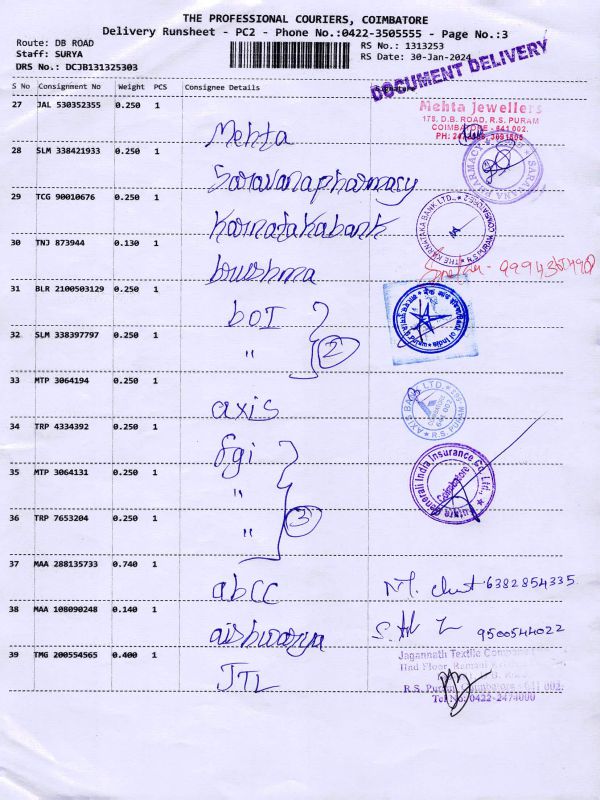 THE PROFESSIONAL COURIERS, COIMBATORE
Delivery Runsheet - PC2 - Phone No.:0422-3505555 - Page No.:3
Route: DB ROAD
Staff: SURYA
DRS No.: DCJB131325303
RS No.: 1313253
RS Date: 30-Jan-2024
DOCUMENT DELIVERY
S No Consignment No Weight PCS Consignee Details
27 JAL 530352355 0.250 1
Mehta
Mehta Jewellers
178, D.B. ROAD, R.S. PURAM
COIMBATORE - 641 002.
28 SLM 338421933 0.250 1
Saravana pharmacy
SARAVANA PHARMACY
29 TCG 90010676 0.250 1
Karnataka bank
THE KARNATAKA BANK LTD.,
R.S. PURAM
30 TNJ 873944 0.130 1
31 BLR 2100503129 0.250 1
BOI
Bank of India
32 SLM 338397797 0.250 1
"
2
33 MTP 3064194 0.250 1
axis
AXIS BANK LTD.
R.S. PURAM
34 TRP 4334392 0.250 1
fgi
35 MTP 3064131 0.250 1
"
Future Generali India Insurance Co. Ltd.,
Coimbatore
36 TRP 7653204 0.250 1
"
3
37 MAA 288135733 0.740 1
abcc
6382854335
38 MAA 108090248 0.140 1
aishwarya
9500544022
39 TMG 200554565 0.400 1
JTL
Jagannath Textile Company
Tel No: 0422-2474000